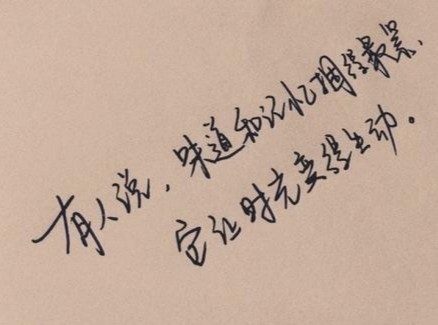 有人说，味道和记忆捆绑最紧，
它让时光变得生动。